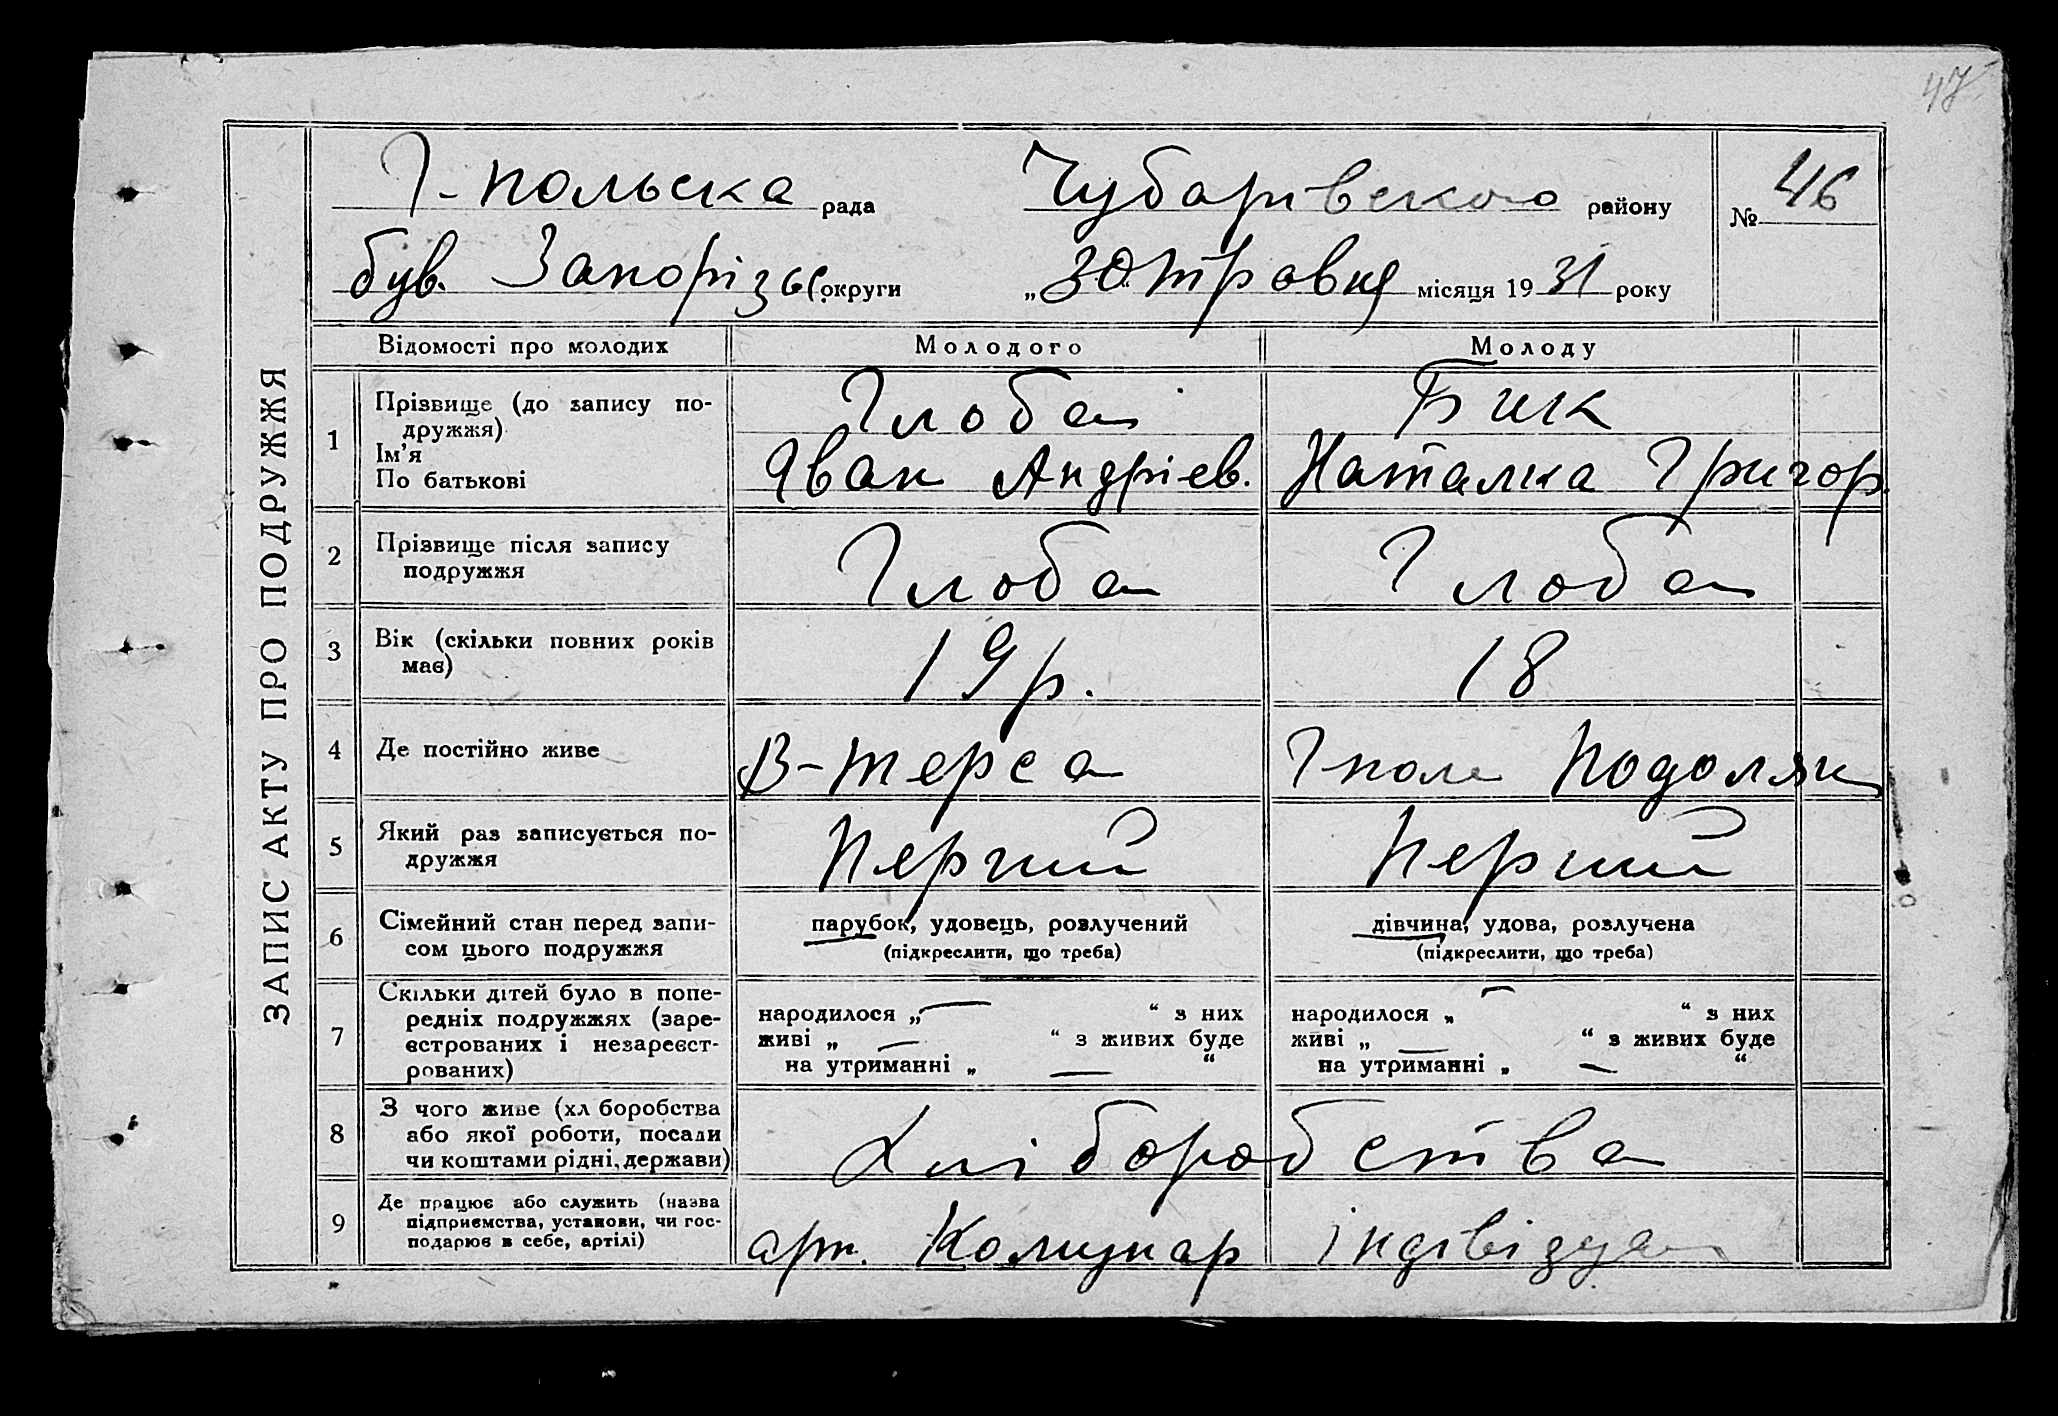 47
Г-польска рада Чубарівского району № 46
був. Запорізьк округи „30" травня місяця 1931 року
ЗАПИС АКТУ ПРО ПОДРУЖЖЯ
Відомості про молодих Молодого Молоду
1 Прізвище (до запису по-
дружжя) Глоба Бик
Ім'я
По батькові Яван Андрієв. Наталка Григор.
2 Прізвище після запису
подружжя Глоба Глоба
3 Вік (скільки повних років
має) 19 р. 18
4 Де постійно живе В-терса Гполе Подолян
5 Який раз записується по-
дружжя Перший Перший
6 Сімейний стан перед запи-
сом цього подружжя
парубок, удовець, розлучений
(підкреслити, що треба)
дівчина, удова, розлучена
(підкреслити, що треба)
7 Скільки дітей було в попе-
редніх подружжях (заре-
єстрованих і незареєст-
рованих)
народилося „— “ з них
живі „ — “ з живих буде
на утриманні „ — “
народилося „ — “ з них
живі „ — “ з живих буде
на утриманні „ — “
8 З чого живе (хл боробства
або якої роботи, посади
чи коштами рідні, держави) Хліборобства
9 Де працює або служить (назва
підприємства, установи, чи гос-
подарює в себе, артілі) арт. Комунар індівідуал